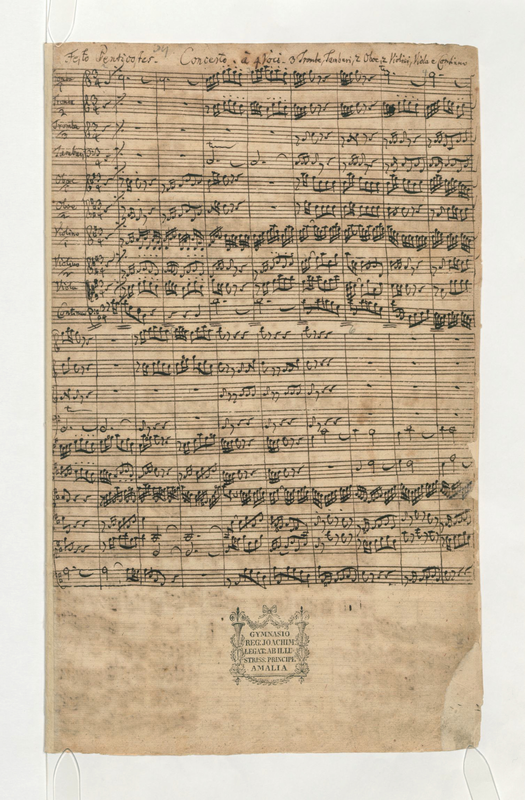 Festo Pentecostes. Concerto. à 4 Voci. 3 Trombe, Tamburi, 2 Oboe, 2 Violini, Viola e Continuo
Tromba
Tromba
Tromba
Tamburi
Oboe
Oboe
Violino
Violino
Viola
Continuo
GYMNASIO
REG. JOACHIM.
LEGAT. AB ILLU-
STRISS. PRINCIPE
AMALIA